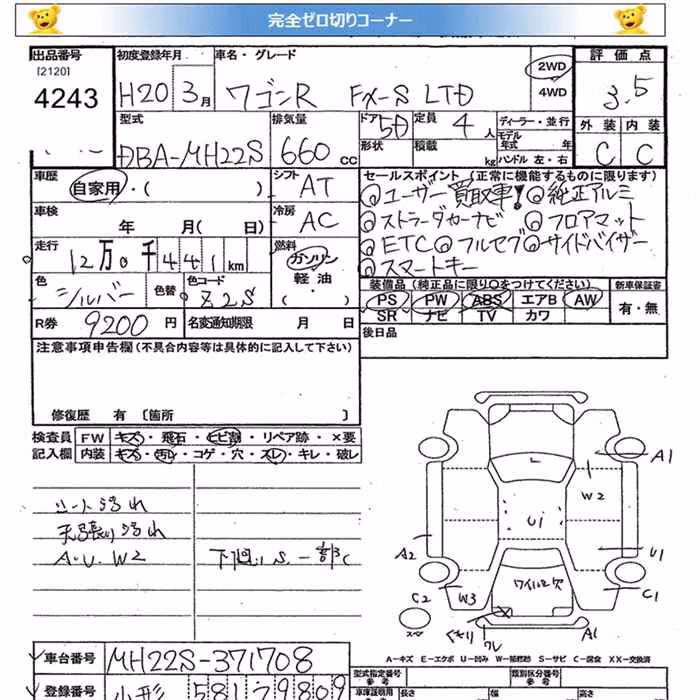 完全ゼロ切りコーナー
出品番号 初度登録年月 車名・グレード 評価点
[2120]
4243 H20 3月 ワゴンR FX-S LTD 2WD 4WD 3.5
型式 排気量 ドア 5D 定員 4人 ディーラー・並行 外装 内装
モデル年式 年
DBA-MH22S 660cc 形状 積載 kg ハンドル 左・右 C C
車歴 自家用・( ) シフト AT セールスポイント(正常に機能するものに限ります)
◎ユーザー買取車! ◎純正アルミ
車検 年 月( 日) 冷房 AC ◎ストラーダカーナビ ◎フロアマット
走行 12万0千441km 燃料 ガソリン・軽油・( ) ◎ETC◎フルセグ◎サイドバイザー
◎スマートキー
色 シルバー 色替 色コード Z2S 装備品(純正品に限り○をつけてください) 新車保証書
PS PW ABS エアB AW 有・無
SR ナビ TV カワ
R券 9200円 名変通知期限 月 日 後日品
注意事項申告欄(不具合内容等は具体的に記入して下さい)
修復歴 有〔箇所 〕
検査員記入欄 FW キズ・飛石・ヒビ割・リペア跡・×要
内装 キズ・汚レ・コゲ・穴・スレ・キレ・破レ
シート汚れ
天張り汚れ
A.U.W2 下廻りS.一部C
A1
W2
U1
A2 U1
ワイパー穴
C2 W3 C1
A1
ワレ
A−キズ E−エクボ U−凹み W−補修跡 S−サビ C−腐食 XX−交換済
車台番号 MH22S-371708 型式指定番号 類別区分番号
登録番号 山形 581 2 9809 車庫証明用参考 長さ 幅 高さ